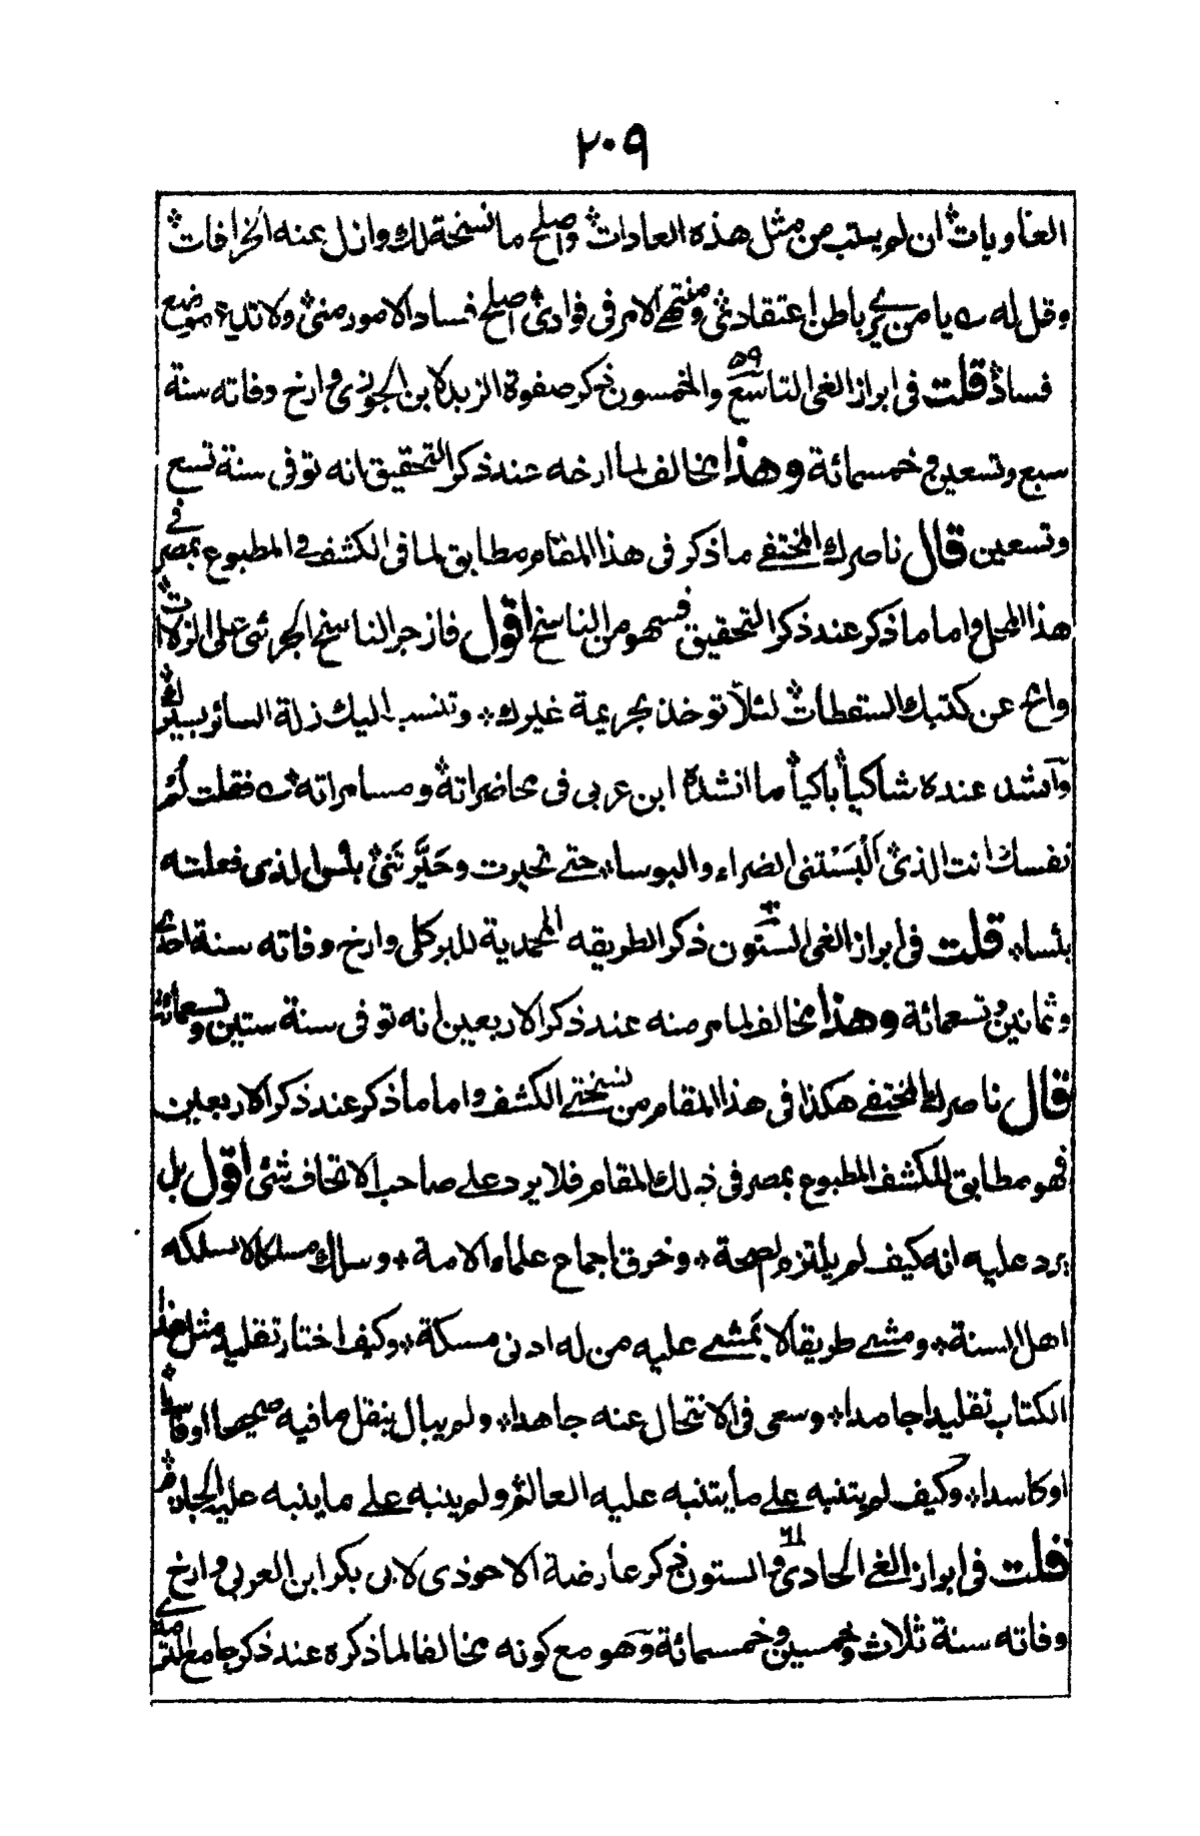 ٢٠٩
الغاويات ان لم يتب من مثل هذه العادات واصلح ما نسخة لك وازل عنه الخرافات
وقل له يا من يرى باطن اعتقادي ومنتهى الامر في فوادي اصلح فساد الامور مني ولا تدع موضع
فساد قلت في ابراز الغي التاسع ٥٩ والخمسون ذكر صفوة الزبد لابن الجوزي وارخ وفاته سنة
سبع وتسعين وخمسمائة وهذا مخالف لما ارخه عند ذكر التحقيق انه توفى سنة تسع
وتسعين قال ناصرك المختفى ما ذكر في هذا المقام مطابق لما في الكشف المطبوع بمصر في
هذا المحل واما ما ذكر عند ذكر التحقيق فسهو من الناسخ اقول فازجر الناسخ الجرئي على الزلات
وامح عن كتبك السقطات لئلا توخذ بجريمة غيرك وتنسب اليك زلة السائر بسيرك
وانشد عنده شاكيا باكيا ما انشده ابن عربي في محاضراته ومسامراته فقلت لم
نفسك انت الذي البستني الضراء والبوسا حتى تحيرت وحيرتني بئس الذي فعلته
بئسا قلت في ابراز الغي الستون ٦٠ ذكر الطريقه المحمدية للبركلي وارخ وفاته سنة احدى
وثمانين وتسعمائة وهذا مخالف لما مر منه عند ذكر الاربعين انه توفى سنة ستين وتسعمائة
قال ناصرك المختفى هكذا في هذا المقام من نسختى الكشف واما ما ذكر عند ذكر الاربعين
فهو مطابق للكشف المطبوع بمصر في ذلك المقام فلا يرد على صاحب الاتحاف شئ اقول بل
يرد عليه انه كيف لم يلتزم الصحة وخرق اجماع علماء الامة وسلك مسلكا لا يسلكه
اهل السنة ومشى طريقا لا يمشى عليه من له ادنى مسكة وكيف اختار تقليد مثل هذا
الكتاب تقليدا جامدا وسعى في الانتحال عنه جاهدا ولم يبال بنقل ما فيه صحيحا او فاسدا
او كاسدا وكيف لم يتنبه على ما يتنبه عليه العالم ولم ينبه على ما ينبه عليه الحازم
قلت في ابراز الغي الحادي ٦١ والستون ذكر عارضة الاحوذي لابى بكر ابن العربي وارخ
وفاته سنة ثلاث وخمسين وخمسمائة وهو مع كونه مخالفا لما ذكره عند ذكر جامع الترمذي